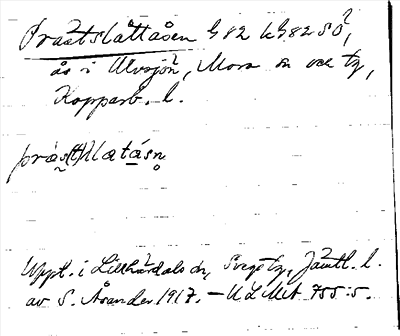 Prästslåttåsen h 82 k h 82 S Ö,
ås i Älvsjön, Mora sn och tg,
Kopparb. l.
Uppt. i Lillhärdals sn, Svegs tg, Jämtl. l.
av S. Åsander 1917. – ULMA 755:5.